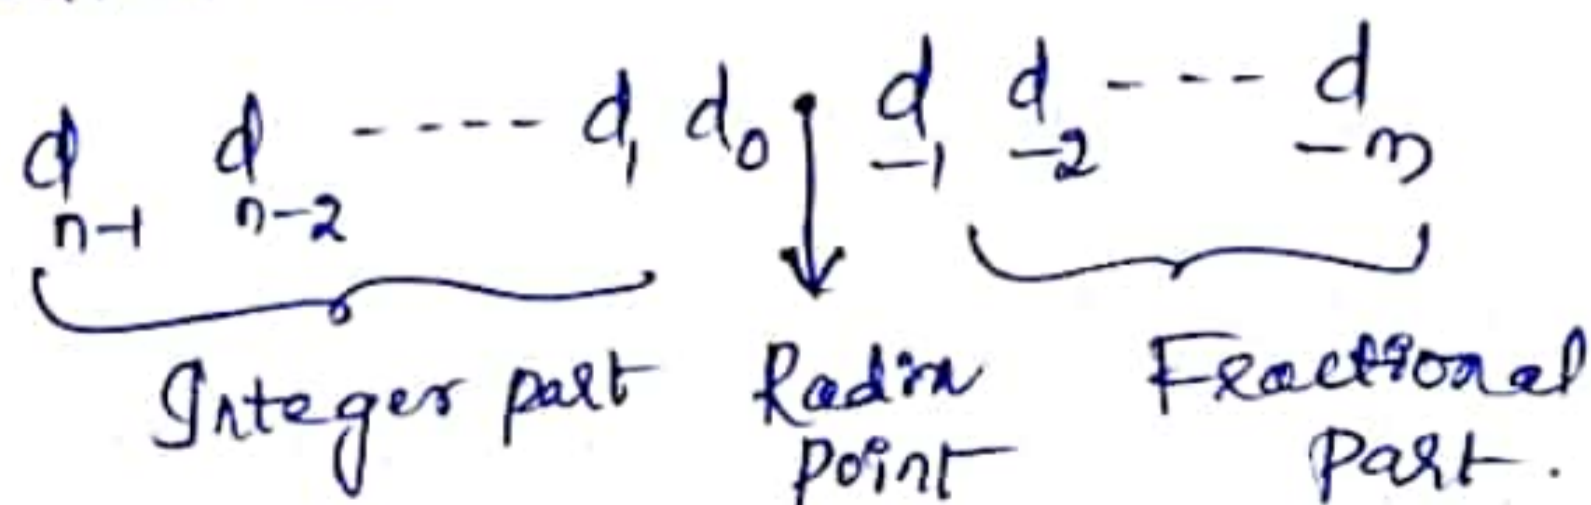 d_{n-1} d_{n-2} ---- d_1 d_0 . d_{-1} d_{-2} ---- d_{-m}
Integer part Radix point Fractional part.